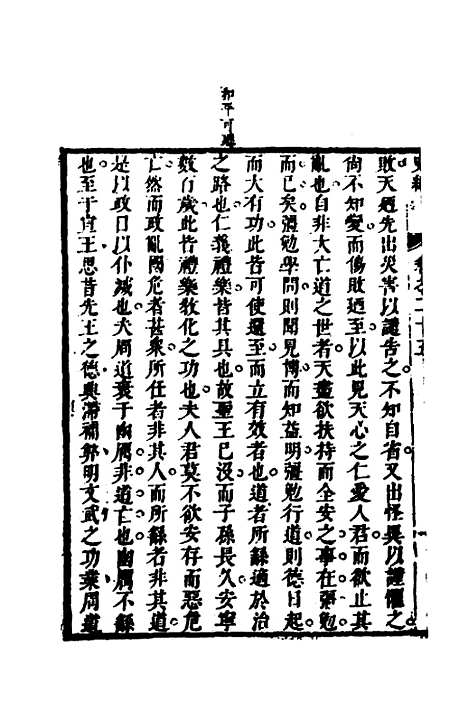 和平可聽
史
卷之二十五
敗天廼先出災害以譴告之不知自省又出怪異以譴懼之
尚不知變而傷敗廼至以此見天心之仁愛人君而欲止其
亂也自非大亡道之世者天盡欲扶持而全安之事在彊勉
而已矣彊勉學問則聞見博而知益明彊勉行道則德日起
而大有功此皆可使還至而立有效者也道者所繇適於治
之路也仁義禮樂皆其具也故聖王已沒而子孫長久安寧
數百歲此皆禮樂敎化之功也夫人君莫不欲安存而惡危
亡然而政亂國危者甚衆所任者非其人而所繇者非其道
是以政日以仆滅也夫周道衰于幽厲非道亡也幽厲不繇
也至于宣王思昔先王之德興滯補弊明文武之功業周道